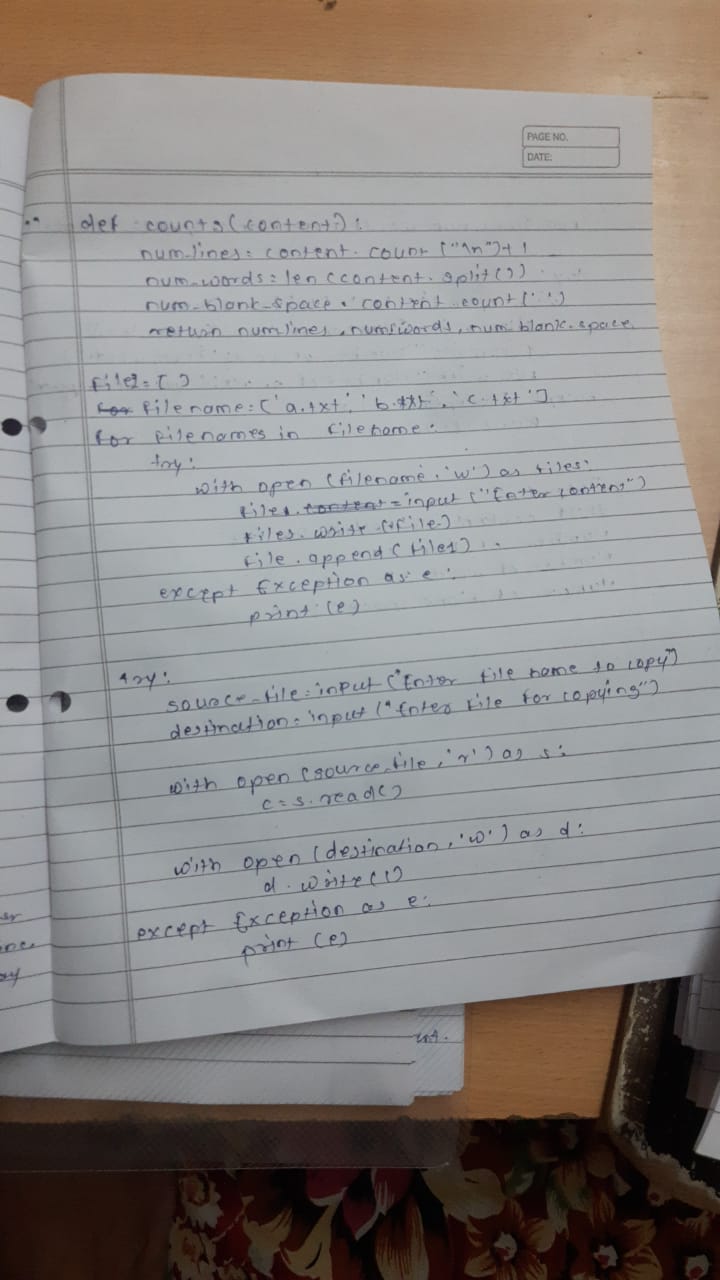 PAGE NO.
DATE:
def counts(content):
num_lines = content.count("\n")+1
num_words = len(content.split())
num_blank_space = content.count(' ')
return numlines, numwords, num_blank_space
file1 = [ ]
For filename = ['a.txt', 'b.txt', 'c.txt']
for filenames in filename:
try:
with open (filename, 'w') as files:
file1 content = input ("Enter content")
files.write (file)
file.append (file1)
except Exception as e:
print (e)
try:
source_file = input ("Enter file name to copy")
destination = input ("Enter file for copying")
with open (source_file, 'r') as s:
c = s.read()
with open (destination, 'w') as d:
d.write(c)
except Exception as e:
print (e)